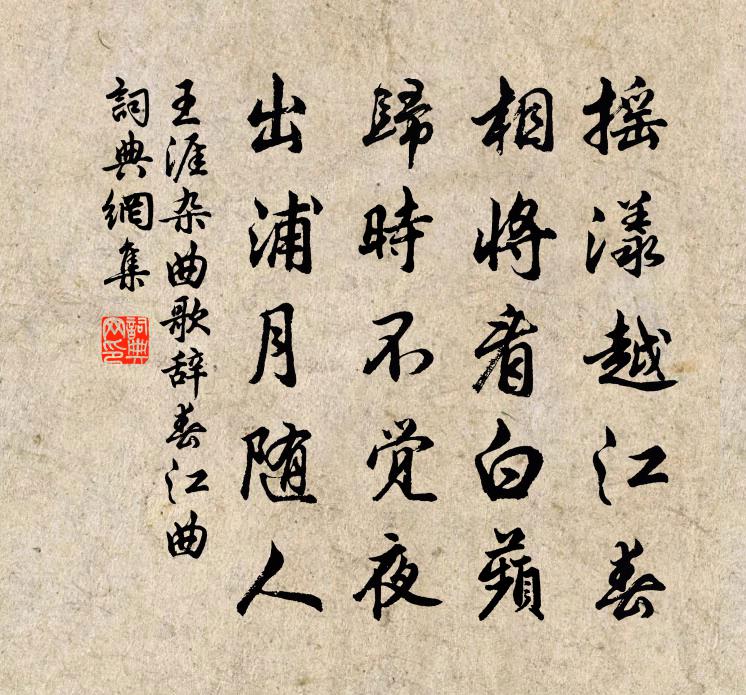 摇漾越江春
相将看白蘋
歸時不觉夜
出浦月随人
王涯杂曲歌辞春江曲
詞典網集
詞典網印